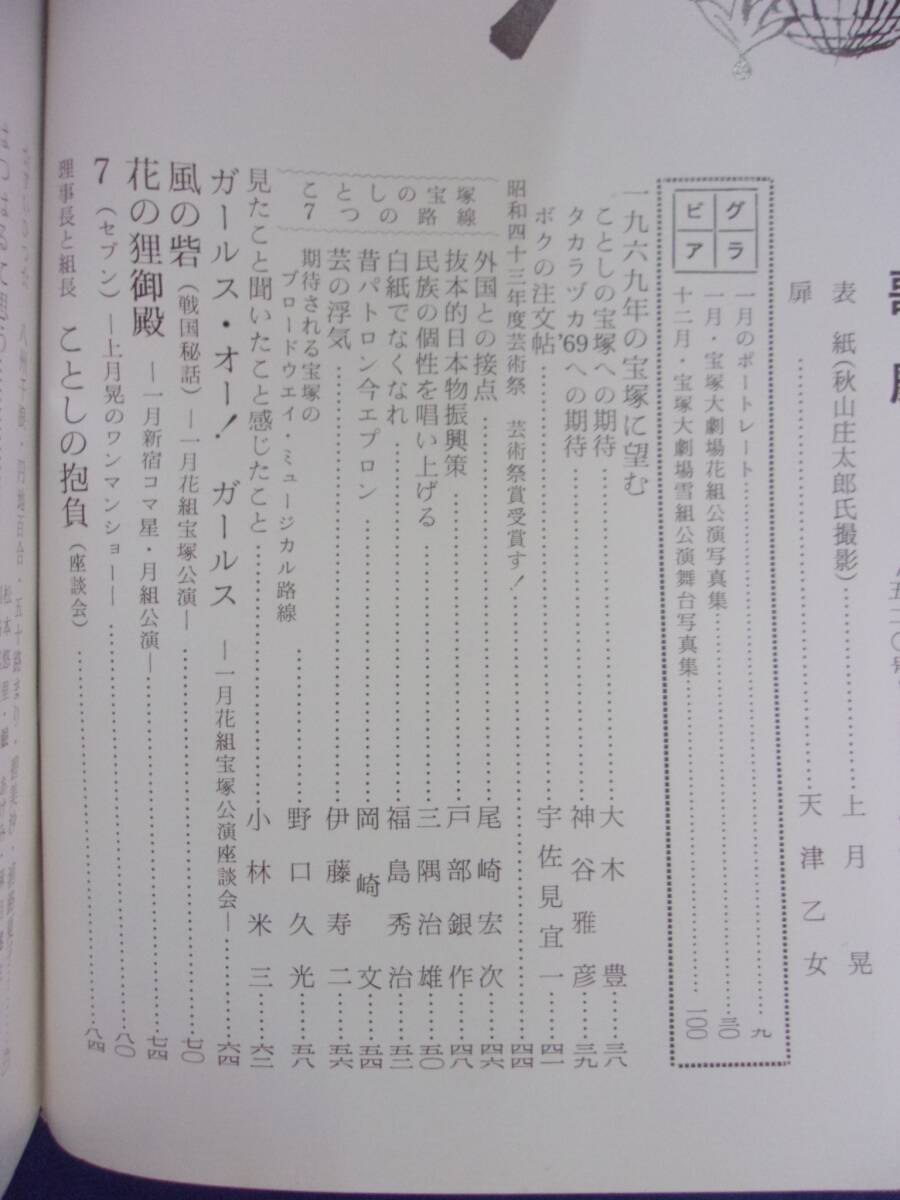 表　紙（秋山庄太郎氏撮影）………上月　晃
扉………天津乙女
グラビア
一月のポートレート………九
一月・宝塚大劇場花組公演写真集………三〇
十二月・宝塚大劇場雪組公演舞台写真集………一〇〇
一九六九年の宝塚に望む
ことしの宝塚への期待………大木　豊………三八
タカラヅカ'69への期待………神谷雅彦………三九
ボクの注文帖………宇佐見宜一………四一
昭和四十三年度芸術祭　芸術祭賞受賞す！………四四
ことしの宝塚路線
7つの
外国との接点………尾崎宏次………四六
抜本的日本物振興策………戸部銀作………四八
民族の個性を唱い上げる………三隅治雄………五〇
白紙でなくなれ………福島秀治………五二
昔パトロン今エプロン………岡崎　文………五四
芸の浮気………伊藤寿二………五六
期待される宝塚の
ブロードウエイ・ミュージカル路線………野口久光………五八
見たこと聞いたこと感じたこと………小林米三………六二
ガールス・オー！ガールス　―一月花組宝塚公演座談会―………六四
風の砦（戦国秘話）―一月花組宝塚公演―………七〇
花の狸御殿　―一月新宿コマ星・月組公演―………七四
7（セブン）―上月晃のワンマンショー―………八〇
理事長と組長　ことしの抱負（座談会）………八四